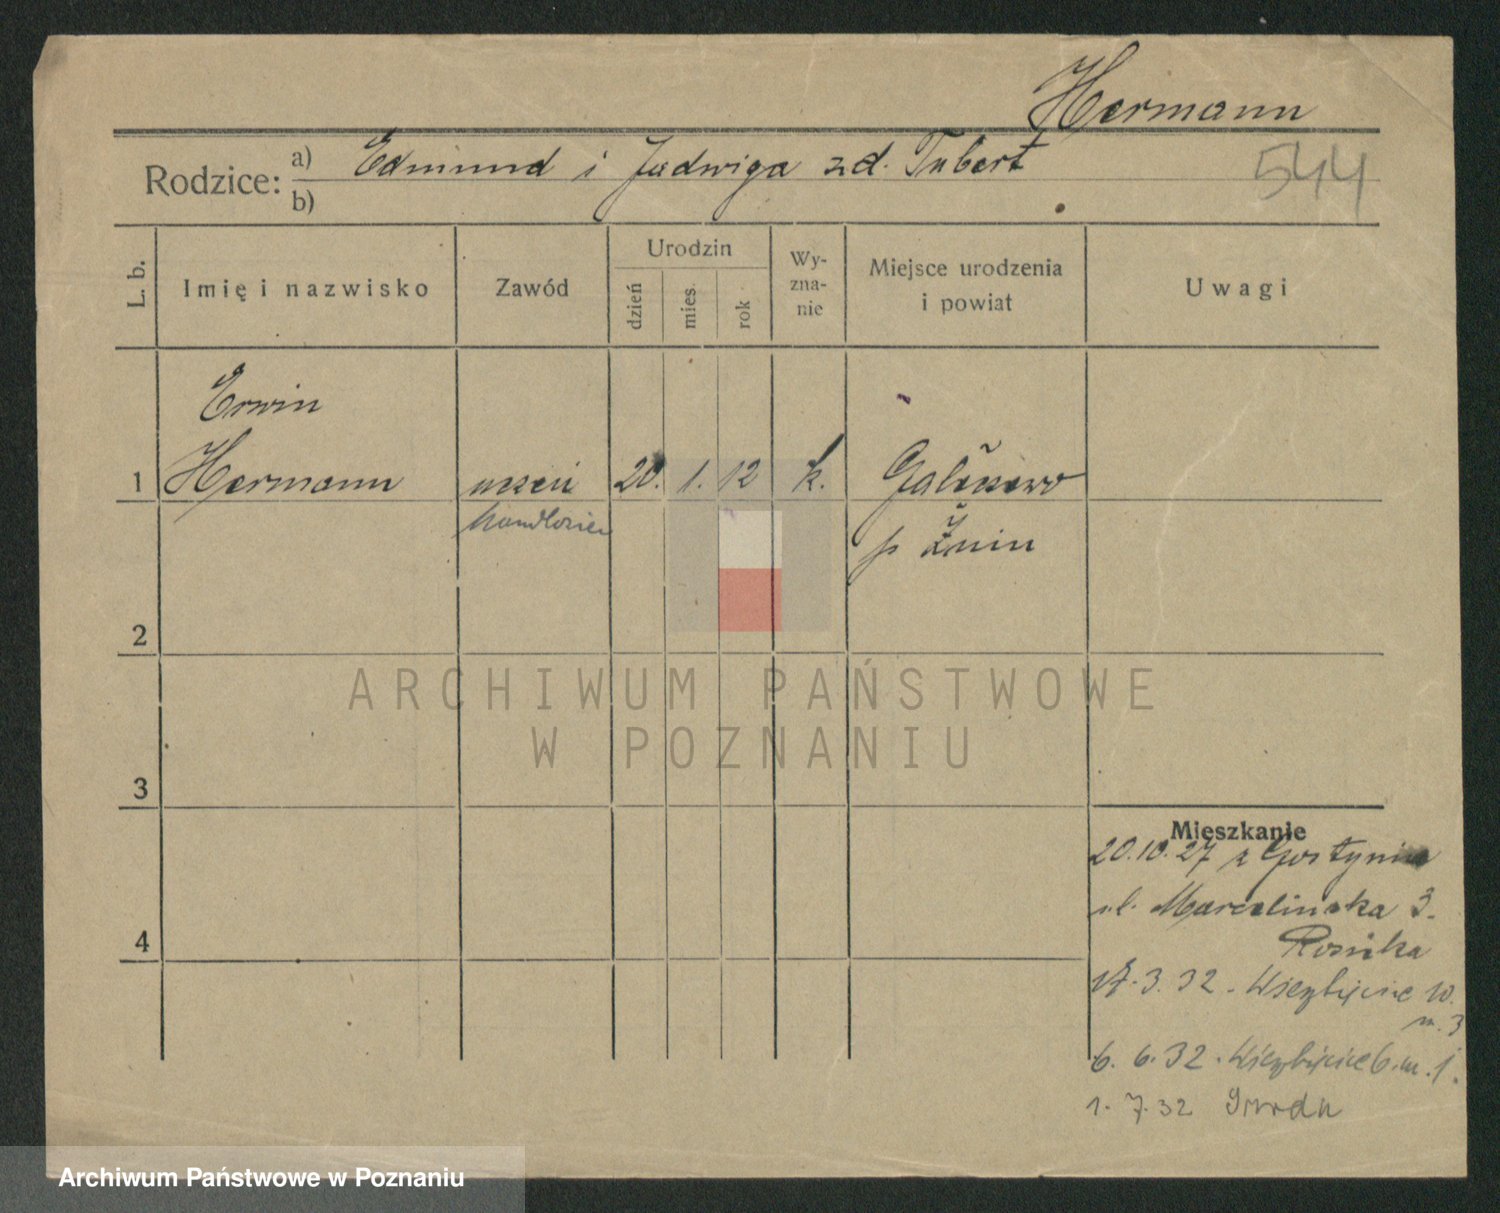 Hermann
Rodzice: a) Edmund i Jadwiga zd. Tubert
b)
544
L. b.
Imię i nazwisko
Zawód
Urodzin
dzień
mies.
rok
Wy-
zna-
nie
Miejsce urodzenia
i powiat
Uwagi
Erwin
1 Hermann uczeń 20. 1. 12 k.
handlowiec
p Żnin
2
3
4
Mieszkanie
20.10.27 z Gostynia
ul. Marcelińska 3.
17.3.32. Wierzbięcice 10.
m. 3
6.6.32. Wierzbięcice 6 m. 1.
1.7.32
ARCHIWUM PAŃSTWOWE
W POZNANIU
Archiwum Państwowe w Poznaniu